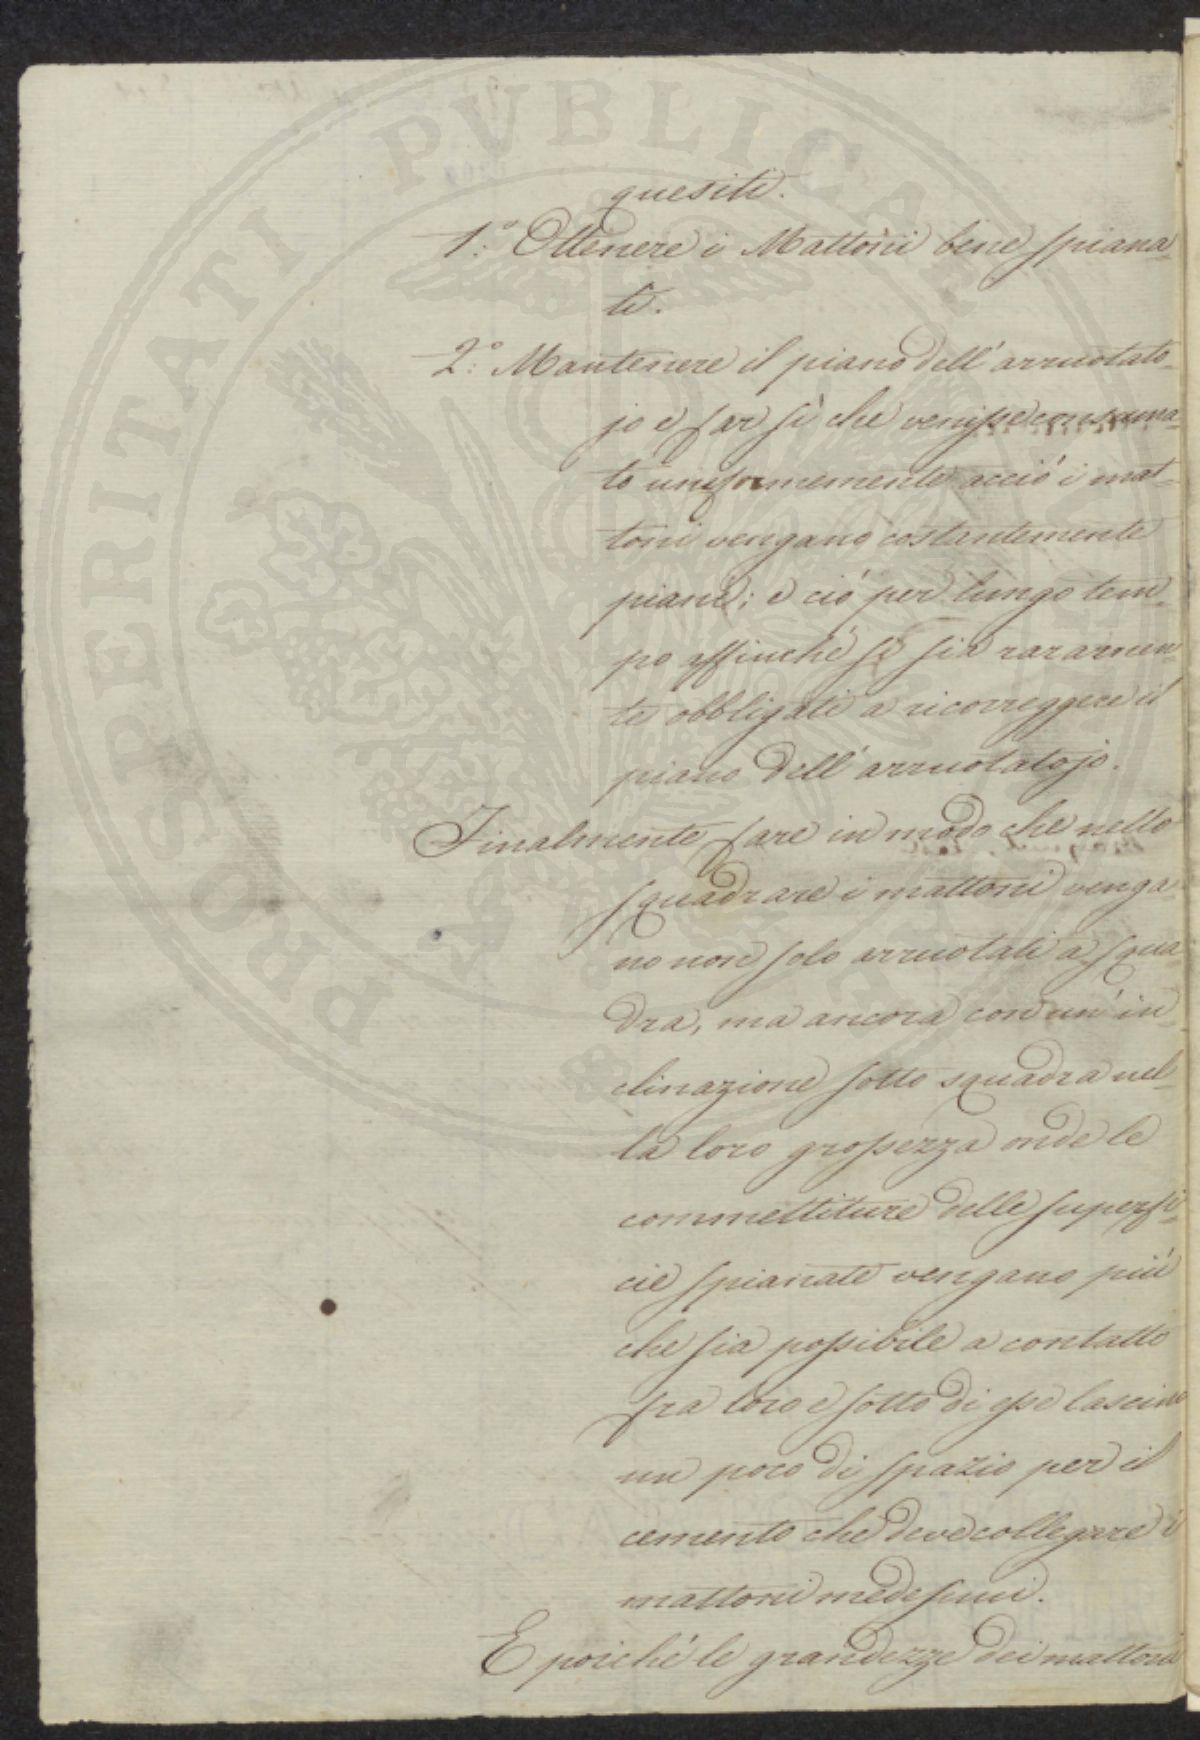 PROSPERITATI PVBLICAE
quesiti.
1.° Ottenere i Mattoni bene spiana-
ti.
2.° Mantenere il piano dell'arruotato-
jo e far sì che venisse consuma-
to uniformemente acciò i mat-
toni vengano costantemente
piani; e ciò per lungo tem-
po affinchè si sia raramen-
te obbligati a ricorreggere il
piano dell'arruotatojo.
Finalmente fare in modo che nello
squadrare i mattoni venga-
no non solo arruotati a squa-
dra, ma ancora con un'in-
clinazione sotto squadra nel-
la loro grossezza onde le
commettiture delle superfi-
cie spianate vengano più
che sia possibile a contatto
fra loro e sotto di esse lascino
un poco di spazio per il
cemento che deve collegare i
mattoni medesimi.
E poichè le grandezze dei mattoni